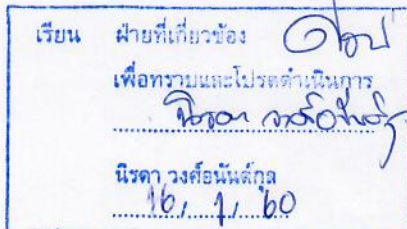 เรียน ฝ่ายที่เกี่ยวข้อง
เพื่อทราบและโปรดดำเนินการ
นิรดา วงศ์อนันต์กุล
16, 1, 60